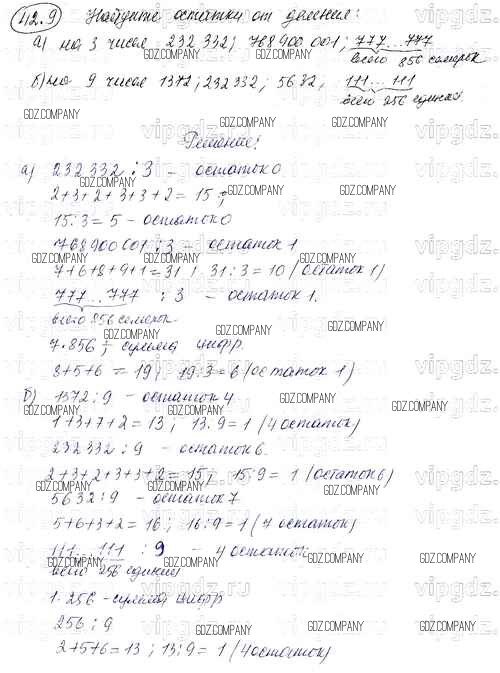 42.9 Найдите остатки от деления:
а) на 3 числа 232 332; 768 900 001; 777...777
всего 856 семерок
б) на 9 числа 1372; 232332; 5632, 111...111
всего 256 единиц
Решение:
а) 232332 : 3 - остаток 0
2+3+2+3+3+2=15;
15:3=5 - остаток 0
768900001 : 3 - остаток 1
7+6+8+9+1=31; 31:3=10 (остаток 1)
777...777 : 3 - остаток 1.
всего 856 семерок
7·856 - сумма цифр
8+5+6=19; 19:3=6 (остаток 1)
б) 1372:9 - остаток 4
1+3+7+2=13; 13:9=1 (4 остаток)
232332:9 - остаток 6.
2+3+2+3+3+2=15; 15:9=1 (остаток 6)
5632:9 - остаток 7
5+6+3+2=16; 16:9=1 (7 остаток)
111...111 : 9 - 4 остаток
всего 256 единиц
1·256 - сумма цифр
256:9
2+5+6=13; 13:9=1 (4 остаток)
GDZ.COMPANY
vipgdz.ru